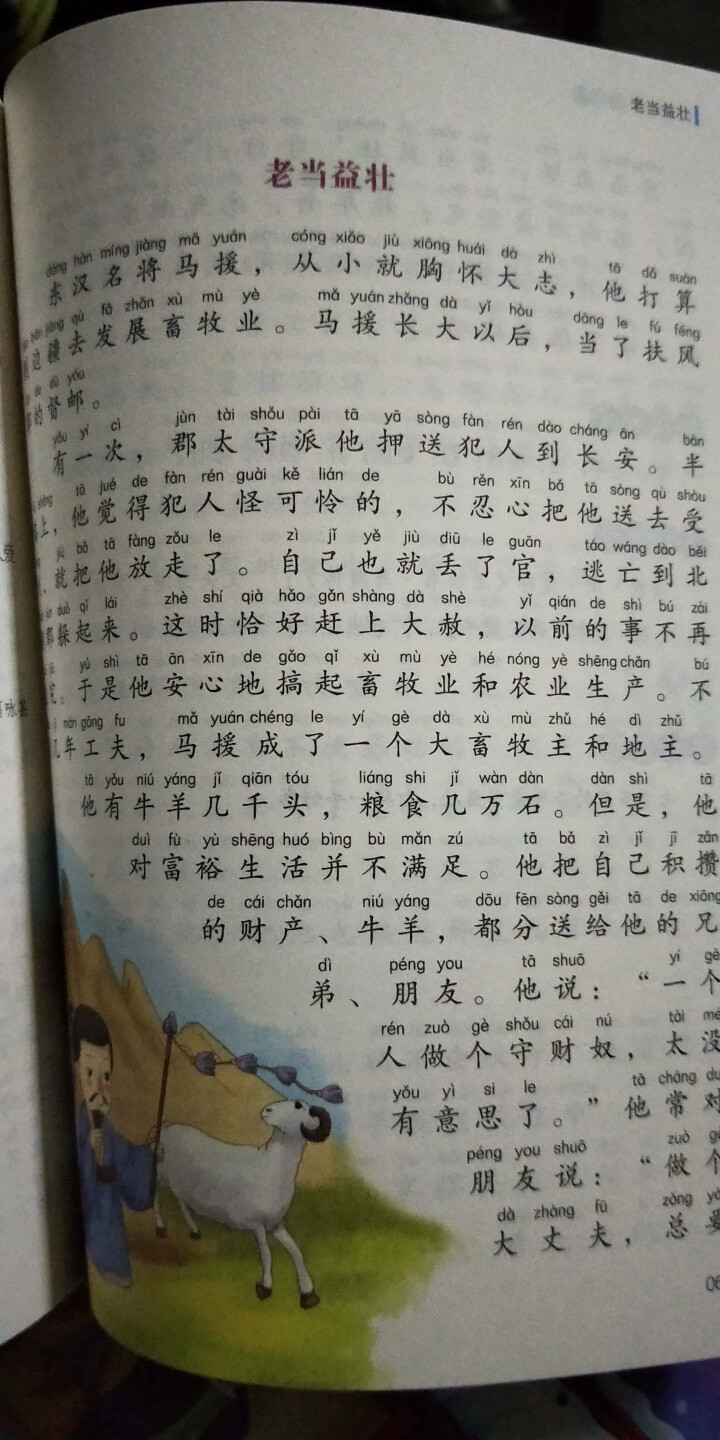 老当益壮
老当益壮
dōng hàn míng jiàng mǎ yuán cóng xiǎo jiù xiōng huái dà zhì tā dǎ suàn
东汉名将马援，从小就胸怀大志，他打算
biān jiāng qù fā zhǎn xù mù yè mǎ yuán zhǎng dà yǐ hòu dāng le fú fēng
边疆去发展畜牧业。马援长大以后，当了扶风
de dū yóu
的督邮。
yǒu yí cì jùn tài shǒu pài tā yā sòng fàn rén dào cháng ān bàn
有一次，郡太守派他押送犯人到长安。半
shàng tā jué de fàn rén guài kě lián de bù rěn xīn bǎ tā sòng qù shòu
上，他觉得犯人怪可怜的，不忍心把他送去受
jiù bǎ tā fàng zǒu le zì jǐ yě jiù diū le guān táo wáng dào běi
，就把他放走了。自己也就丢了官，逃亡到北
duǒ qǐ lái zhè shí qià hǎo gǎn shàng dà shè yǐ qián de shì bú zài
躲起来。这时恰好赶上大赦，以前的事不再
yú shì tā ān xīn de gǎo qǐ xù mù yè hé nóng yè shēng chǎn bú
。于是他安心地搞起畜牧业和农业生产。不
nián gōng fu mǎ yuán chéng le yí gè dà xù mù zhǔ hé dì zhǔ
几年工夫，马援成了一个大畜牧主和地主。
tā yǒu niú yáng jǐ qiān tóu liáng shi jǐ wàn dàn dàn shì tā
他有牛羊几千头，粮食几万石。但是，他
duì fù yù shēng huó bìng bù mǎn zú tā bǎ zì jǐ jī zǎn
对富裕生活并不满足。他把自己积攒
de cái chǎn niú yáng dōu fēn sòng gěi tā de xiōng
的财产、牛羊，都分送给他的兄
dì péng you tā shuō yí gè
弟、朋友。他说：“一个
rén zuò gè shǒu cái nú tài mé
人做个守财奴，太没
yǒu yì si le tā cháng duì
有意思了。”他常对
péng you shuō zuò gè
朋友说：“做个
dà zhàng fū zǒng yào
大丈夫，总要